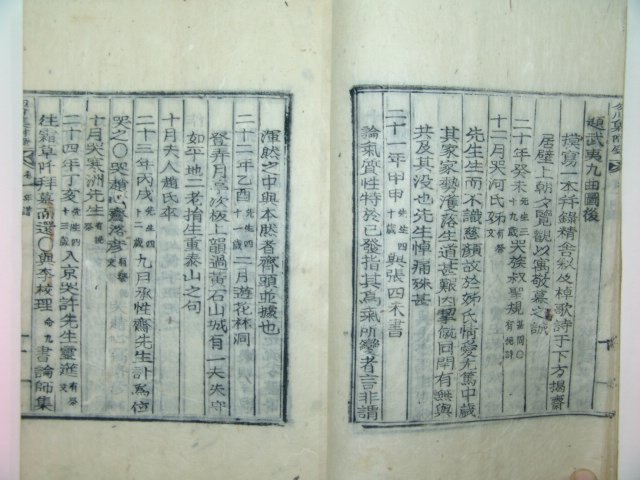 題武夷九曲圖後
摸寫一本幷錄精舍敍及棹歌詩于下方揭齋
居壁上朝夕覽觀以寓敬慕之誠
二十年癸未先生三十九歲哭族叔聖規
十二月哭河氏姊有祭文
先生生而不識慈顔故於姊氏情愛尤篤中歲
其家家勢濩落生道甚艱凶契活同閈有無與
共及其没也先生悼痛殊甚
二十一年甲申先生四十歲與張四未書
論氣質性特於已發指其爲氣所變者言非謂
渾然之中與本然者齊頭並據也
二十二年乙酉先生四十一歲二月遊花林洞
登弄月亭次板上韻過黃石山城有一夫失守
如平地二老揹生重泰山之句
十月夫人趙氏卒
二十三年丙戌先生四十二歲九月承性齋先生訃爲位
哭之○哭趙心齋洛彦有祭文
十月哭寒洲先生有祭文
二十四年丁亥先生四十三歲入京哭許先生靈進有祭文
往霜草阡拜墓而還○與李校理命九書論師集